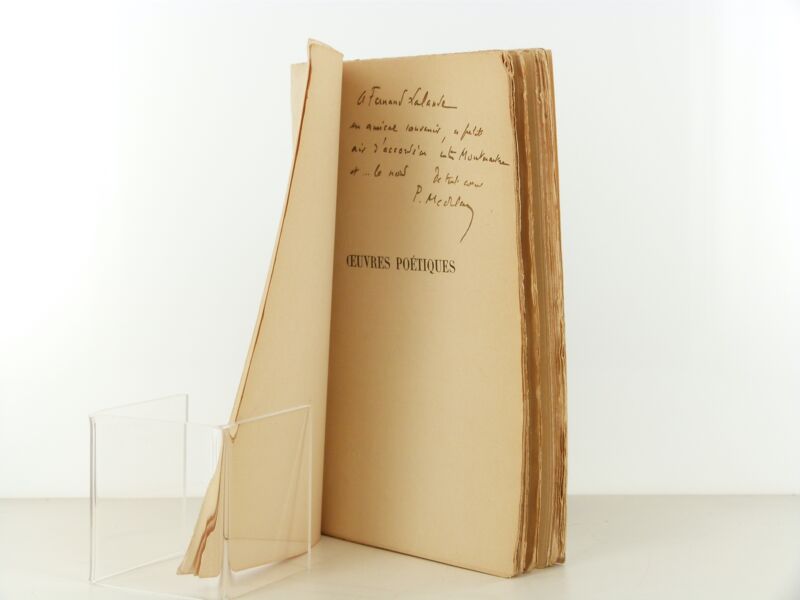 A Fernand Lalande
en amical souvenir, ce petit
air d'accordéon entre Montmartre
et ... le nord De tout cœur
P. Mac Orlan
ŒUVRES POÉTIQUES